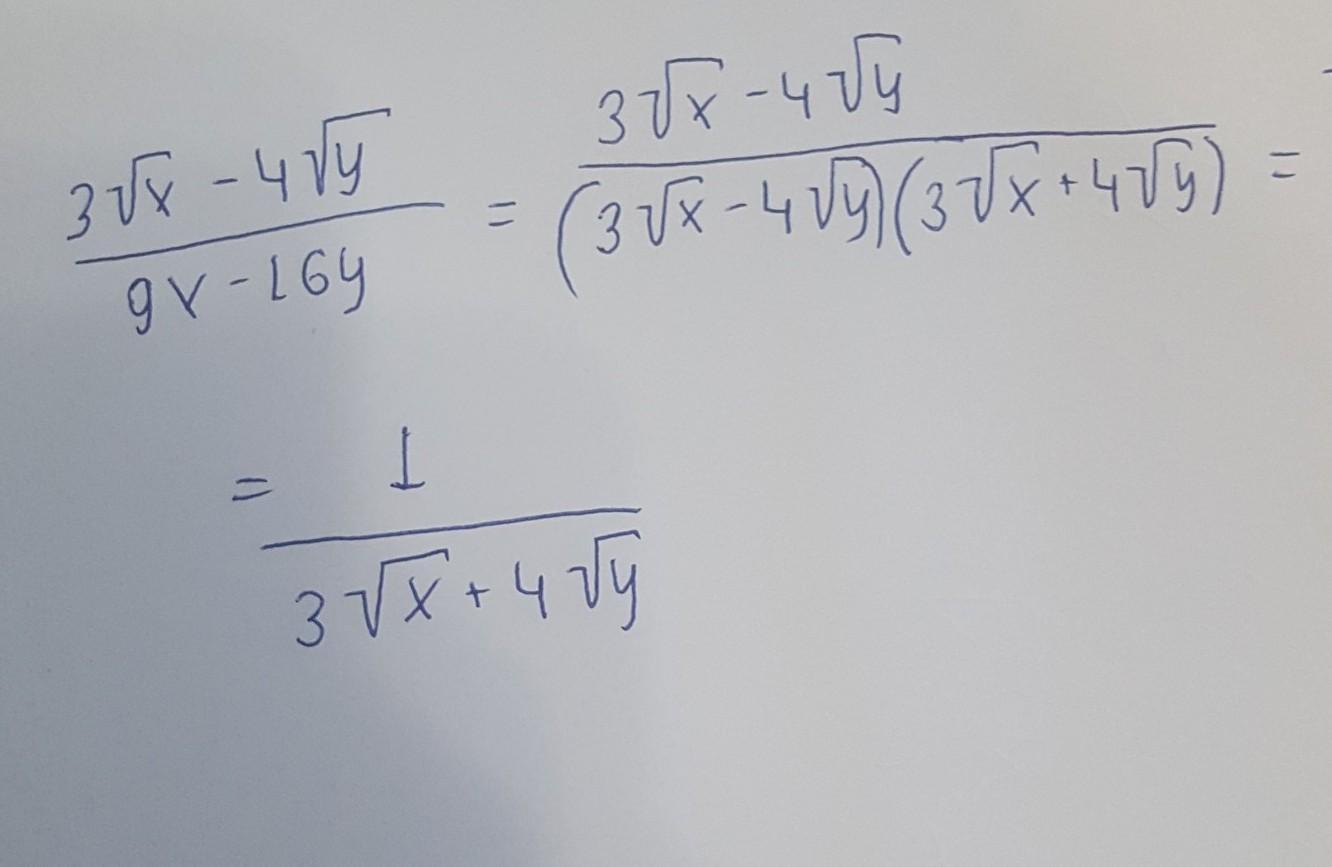 (3√x - 4√y)/(9x - 16y) = (3√x - 4√y)/((3√x - 4√y)(3√x + 4√y)) =
= 1/(3√x + 4√y)